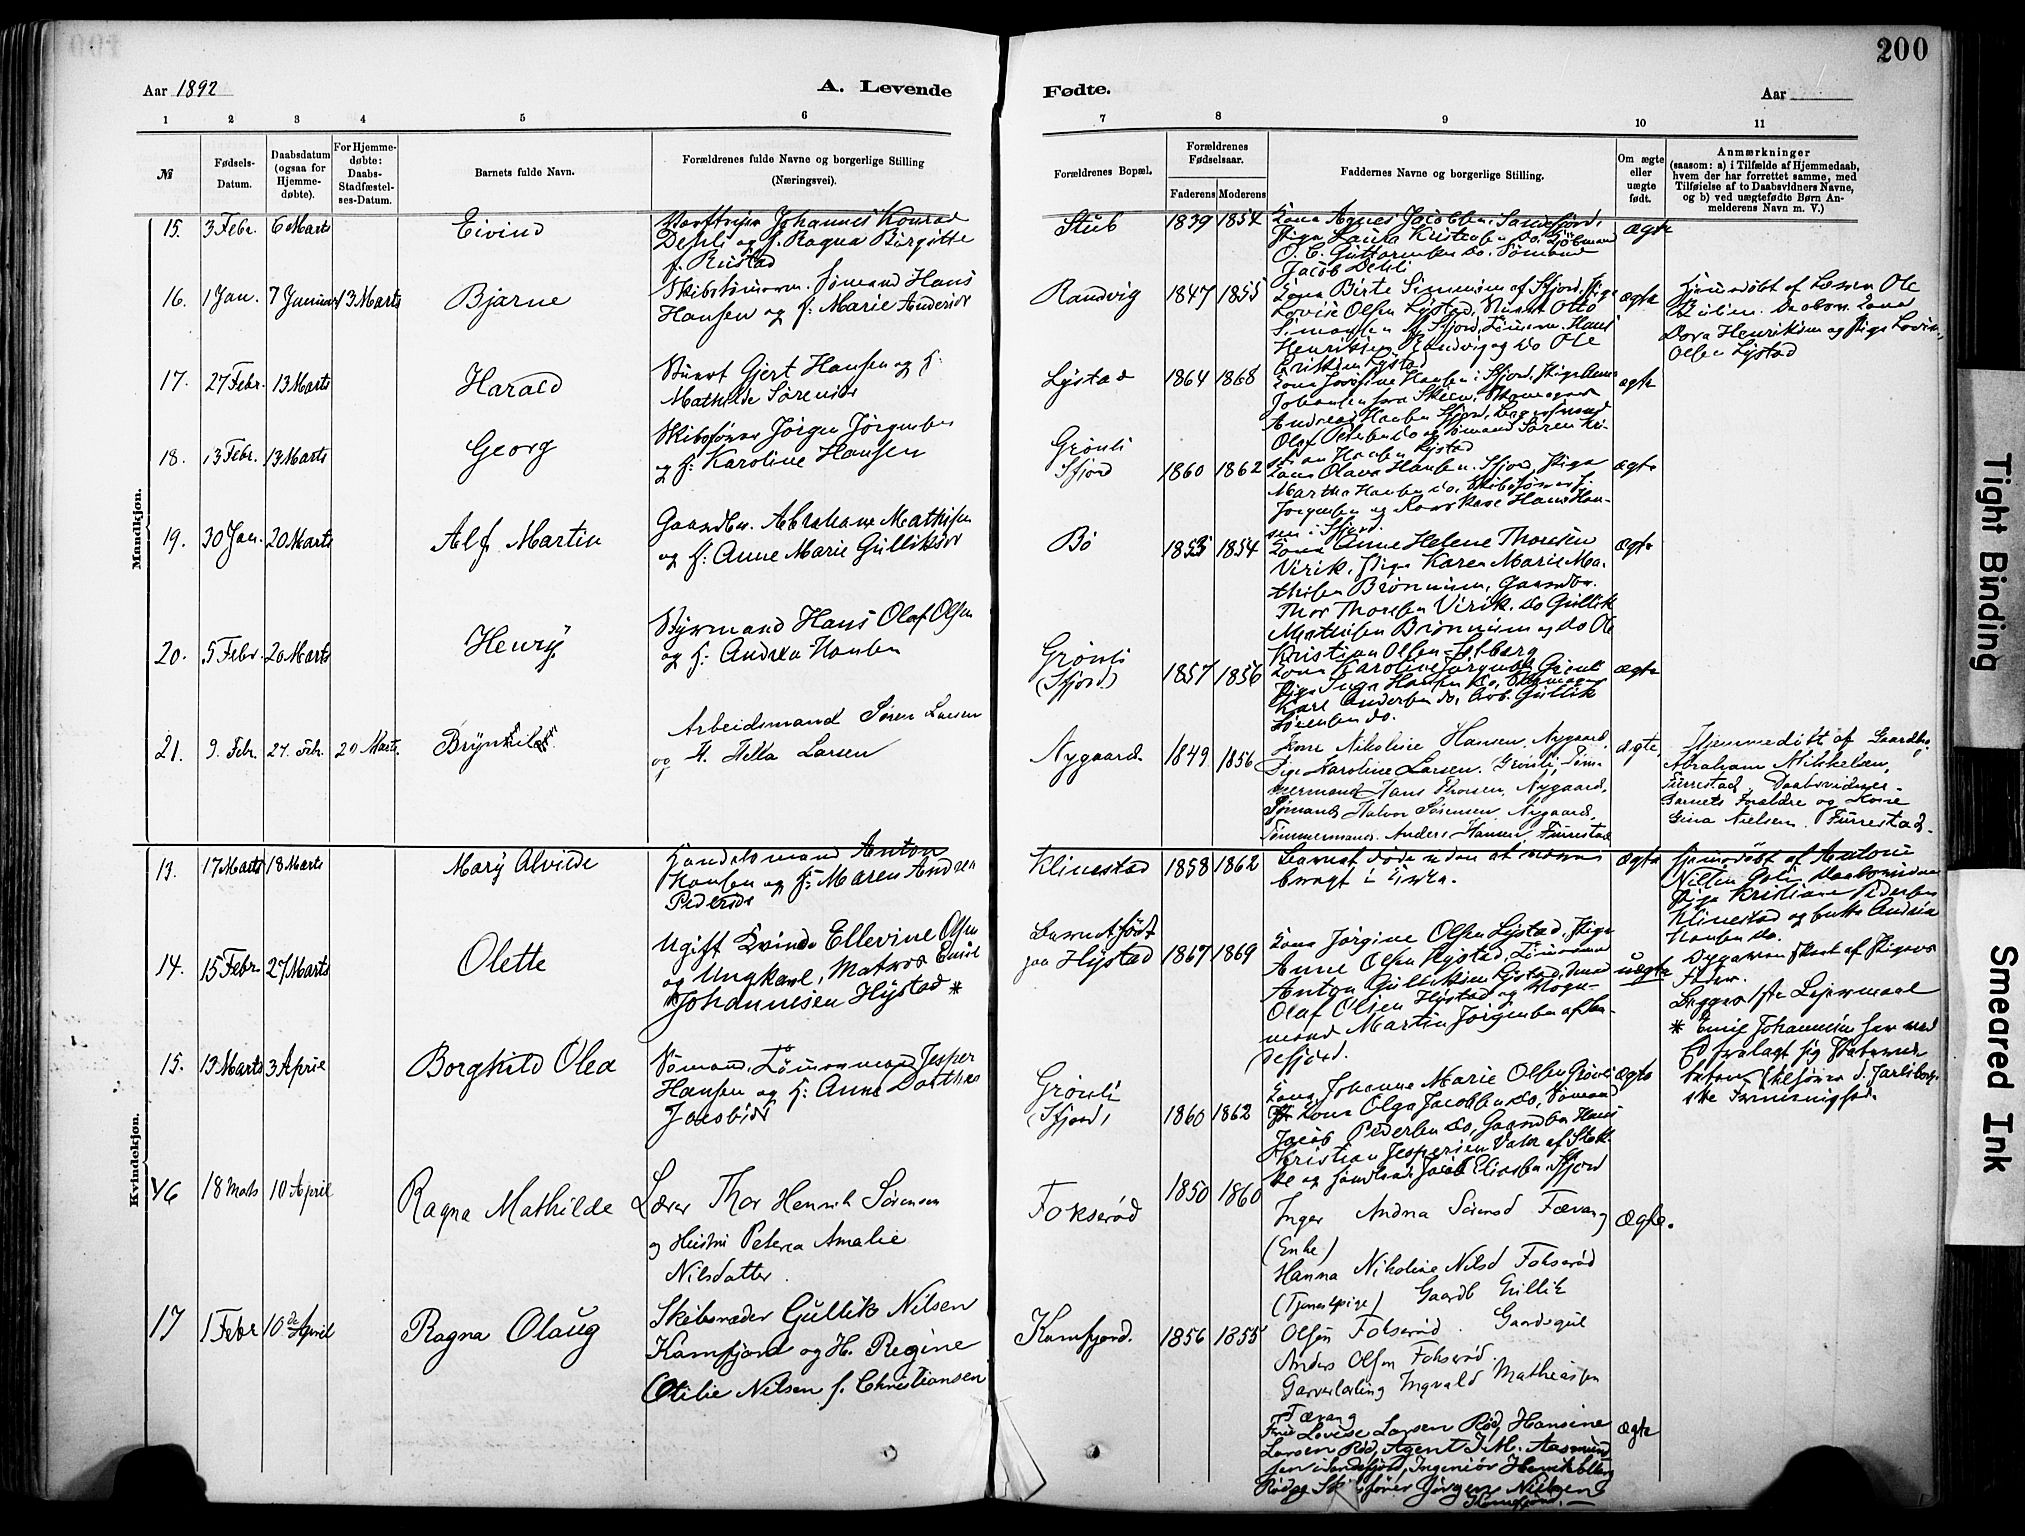 200
Aar 1892
A. Levende
Fødte.
Aar
1 2 3 4 5 6 7 8 9 10 11
№
Fødsels-
Datum.
Daabsdatum
(ogsaa for
Hjemme-
døbte).
For Hjemme-
døbte:
Daabs-
Stadfæstel-
ses-Datum.
Barnets fulde Navn.
Forældrenes fulde Navne og borgerlige Stilling
(Næringsvei).
Forældrenes Bopæl.
Forældrenes
Fødselsaar.
Faderens Moderens
Faddernes Navne og borgerlige Stilling.
Om ægte
eller
uægte
født.
Anmærkninger
(saasom: a) i Tilfælde af Hjemmedaab,
hvem der har forrettet samme, med
Tilføielse af to Daabsvidners Navne,
og b) ved uægtefødte Børn An-
melderens Navn m. V.)
Mandkjøn.
15. 3 Febr. 6 Marts Eivind
Johannes Konrad
Dehli og h. Ragna Birgitte
f. Rustad
Stub 1839 1854
Kona Agnes Jacobsen, Sandefjord,
Pige Laura
Jacob Dehli
ægte
16. 1 Jan. 7 Januar 13 Marts Bjarne
Sømand Hans
Hansen og h: Marie Andersdr
Randvig 1847 1855
Kona Birte Simonsen af Sfjord, Pige
Lovise Olsen Lystad, Stuert Otto
Simonsen af Sfjord, Tømm. Hans
Henriksen Randvig og do Ole
Eriksen Lystad
ægte
Hjemmedøbt af Læreren Ole
Kona
Dora Henriksen og Pige Lovise
Olsen Lystad
17. 27 Febr. 13 Marts Harald
Stuert Gjert Hansen og h:
Mathilde Sørensdr
Lystad 1864 1868
Kona Josefine Hansen i Sfjord, Pige Anne
Johansen fra Skien,
Andreas Hansen Sfjord,
Olaf Petersen do og Sømand Søren Kri-
stian Hansen Lystad
ægte
18. 13 Febr. 13 Marts Georg
Skibsfører Jørgen Jørgensen
og h: Karoline Hansen
Grønli
Sfjord 1860 1862
Kona Olava Hansen. Sfjord, Pige
Martha Hansen do, Skibsfører J.
Jørgensen og Hans Han-
sen i Sfjord.
ægte
19. 30 Jan. 20 Marts Alf Martin
Gaardbr. Abraham Mathisen
og h: Anne Marie Gulliksdr
Bø 1853 1854
Kona Anne Helene Thoresen
Virik, Pige Karen Marie Ma-
thisen Brønnum, Gaardbr.
Thor Thoresen Virik. do Gullik
Mathisen Brønnum og do Ole
Kristian Olsen
ægte
20. 5 Febr. 20 Marts Henry
Styrmand Hans Olaf Olsen
og h: Andrea Hansen
Grønli
(Sfjord) 1857 1856
Kona Karoline Jørgensen Grønli
Pige Inga Hansen do,
Karl Andersen do, Arb. Gullik
Sørensen do.
ægte
21. 9. Febr. 27. Febr. 20 Marts
Arbeidsmand Søren Larsen
og H. Hella Larsen
Nygaard. 1849. 1856
Kone Nikoline Hansen, Nygaard,
Pige Karoline Larsen. Grønli, Tøm-
mermand Hans Thorsen, Nygaard,
Sømand Halvor Sørensen, Nygaard,
Tømmermand. Anders Hansen Furrestad
ægte,
Hjemmedøbt af Gaardbr.
Abraham Mikkelsen,
Furrestad, Daabsvidner.
Barnets Forældre og Kone
Gina Nielsen. Furrestad.
Kvindekjøn.
13. 17 Marts 18 Marts Mary Alvilde
Handelsmand Anton
Hansen og h: Maren Andrea
Pedersdr
Klinestad 1858 1862
Barnet døde uden at være
bragt i Kirke.
ægte
Hjemmedøbt af
Pige Kristiane Pedersen
Klinestad og Andrea
Hansen do.
14. 15 Febr. 27 Marts Olette
Ugift Kvinde Ellevine Olsen
og Ungkarl, Matros Emil
Johannesen Hystad *
Barnet født
paa Hystad 1867 1869
Kona Jørgine Olsen Lystad, Pige
Anne Olsen Hystad,
Anton Gulliksen Lystad,
Olaf Olsen Hystad og Vogn-
mand Martin Jørgensen af San-
defjord.
uægte
Opgaven skeet af Pigens
Fader.
Begges 1ste Leiermaal
* Emil Johannesen har ved
Ed fralagt sig
ske Fornuftighed.
15. 13 Marts 3 April Borghild Olea
Sømand, Tømmermand Jesper
Hansen og h: Anne Dorthea
Jacobsdr
Grønli
(Sfjord) 1860 1862
Kona Johanne Marie Olsen Grønli
Kona Olga Jacobsen do, Sømand
Jacob Pedersen do, Gaardbr. Hans
Kristian Jespersen
Jacob Eliasen Sfjord
ægte
16 18 Mats 10 April Ragna Mathilde
Lærer Thor Henrik Sørensen
og Hustru Petrea Amalie
Nilsdatter.
Fokserød 1850 1860
Inger Andrea Sørensd Fævang
(Enke)
Hanna Nikoline Nilsd Fokserød
(Tjenestepige) Gaardb Gullik
Olsen Fokserød. Gaardsgut
Anders Olsen Fokserød.
Garverlærling Ingvald Mathiassen
Fævang
Ægte.
17 1 Febr 10de April Ragna Olaug
Skibsreder Gullik Nilsen
Kamfjord og H. Regine
Otilie Nilsen f. Christiansen
Kamfjord. 1856 1855
Frue Lovise Larsen Rød, Hansine
Larsen Rød, Agent J. M. Aasmund
sen i Sandefjord, Ingeniør Henrik
Rød og Skibsfører Jørgen Nilsen
Kamfjord.
ægte
Tight Binding
Smeared Ink